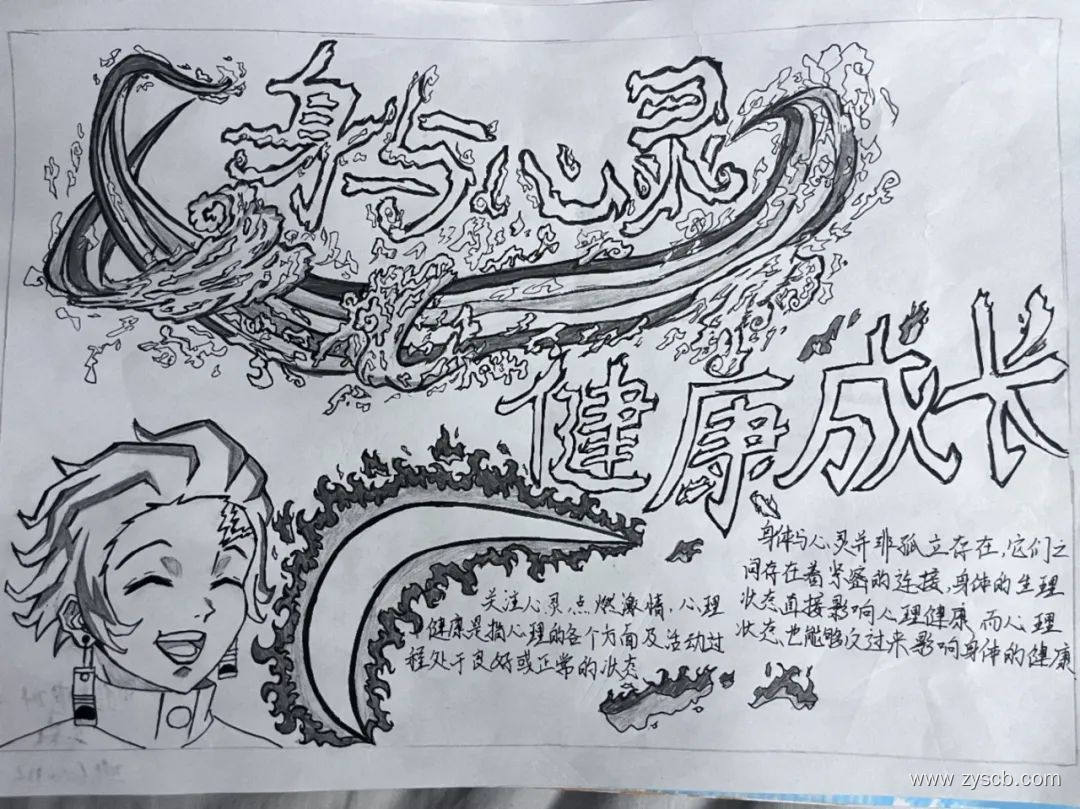 身与心灵
健康成长
身体与心灵并非孤立存在,它们之
间存在着紧密的连接,身体的生理
状态直接影响心理健康 而心理
状态也能够反过来影响身体的健康
关注心灵,点燃激情,心理
健康是指心理的各个方面及活动过
程处于良好或正常的状态
www.zyscb.com